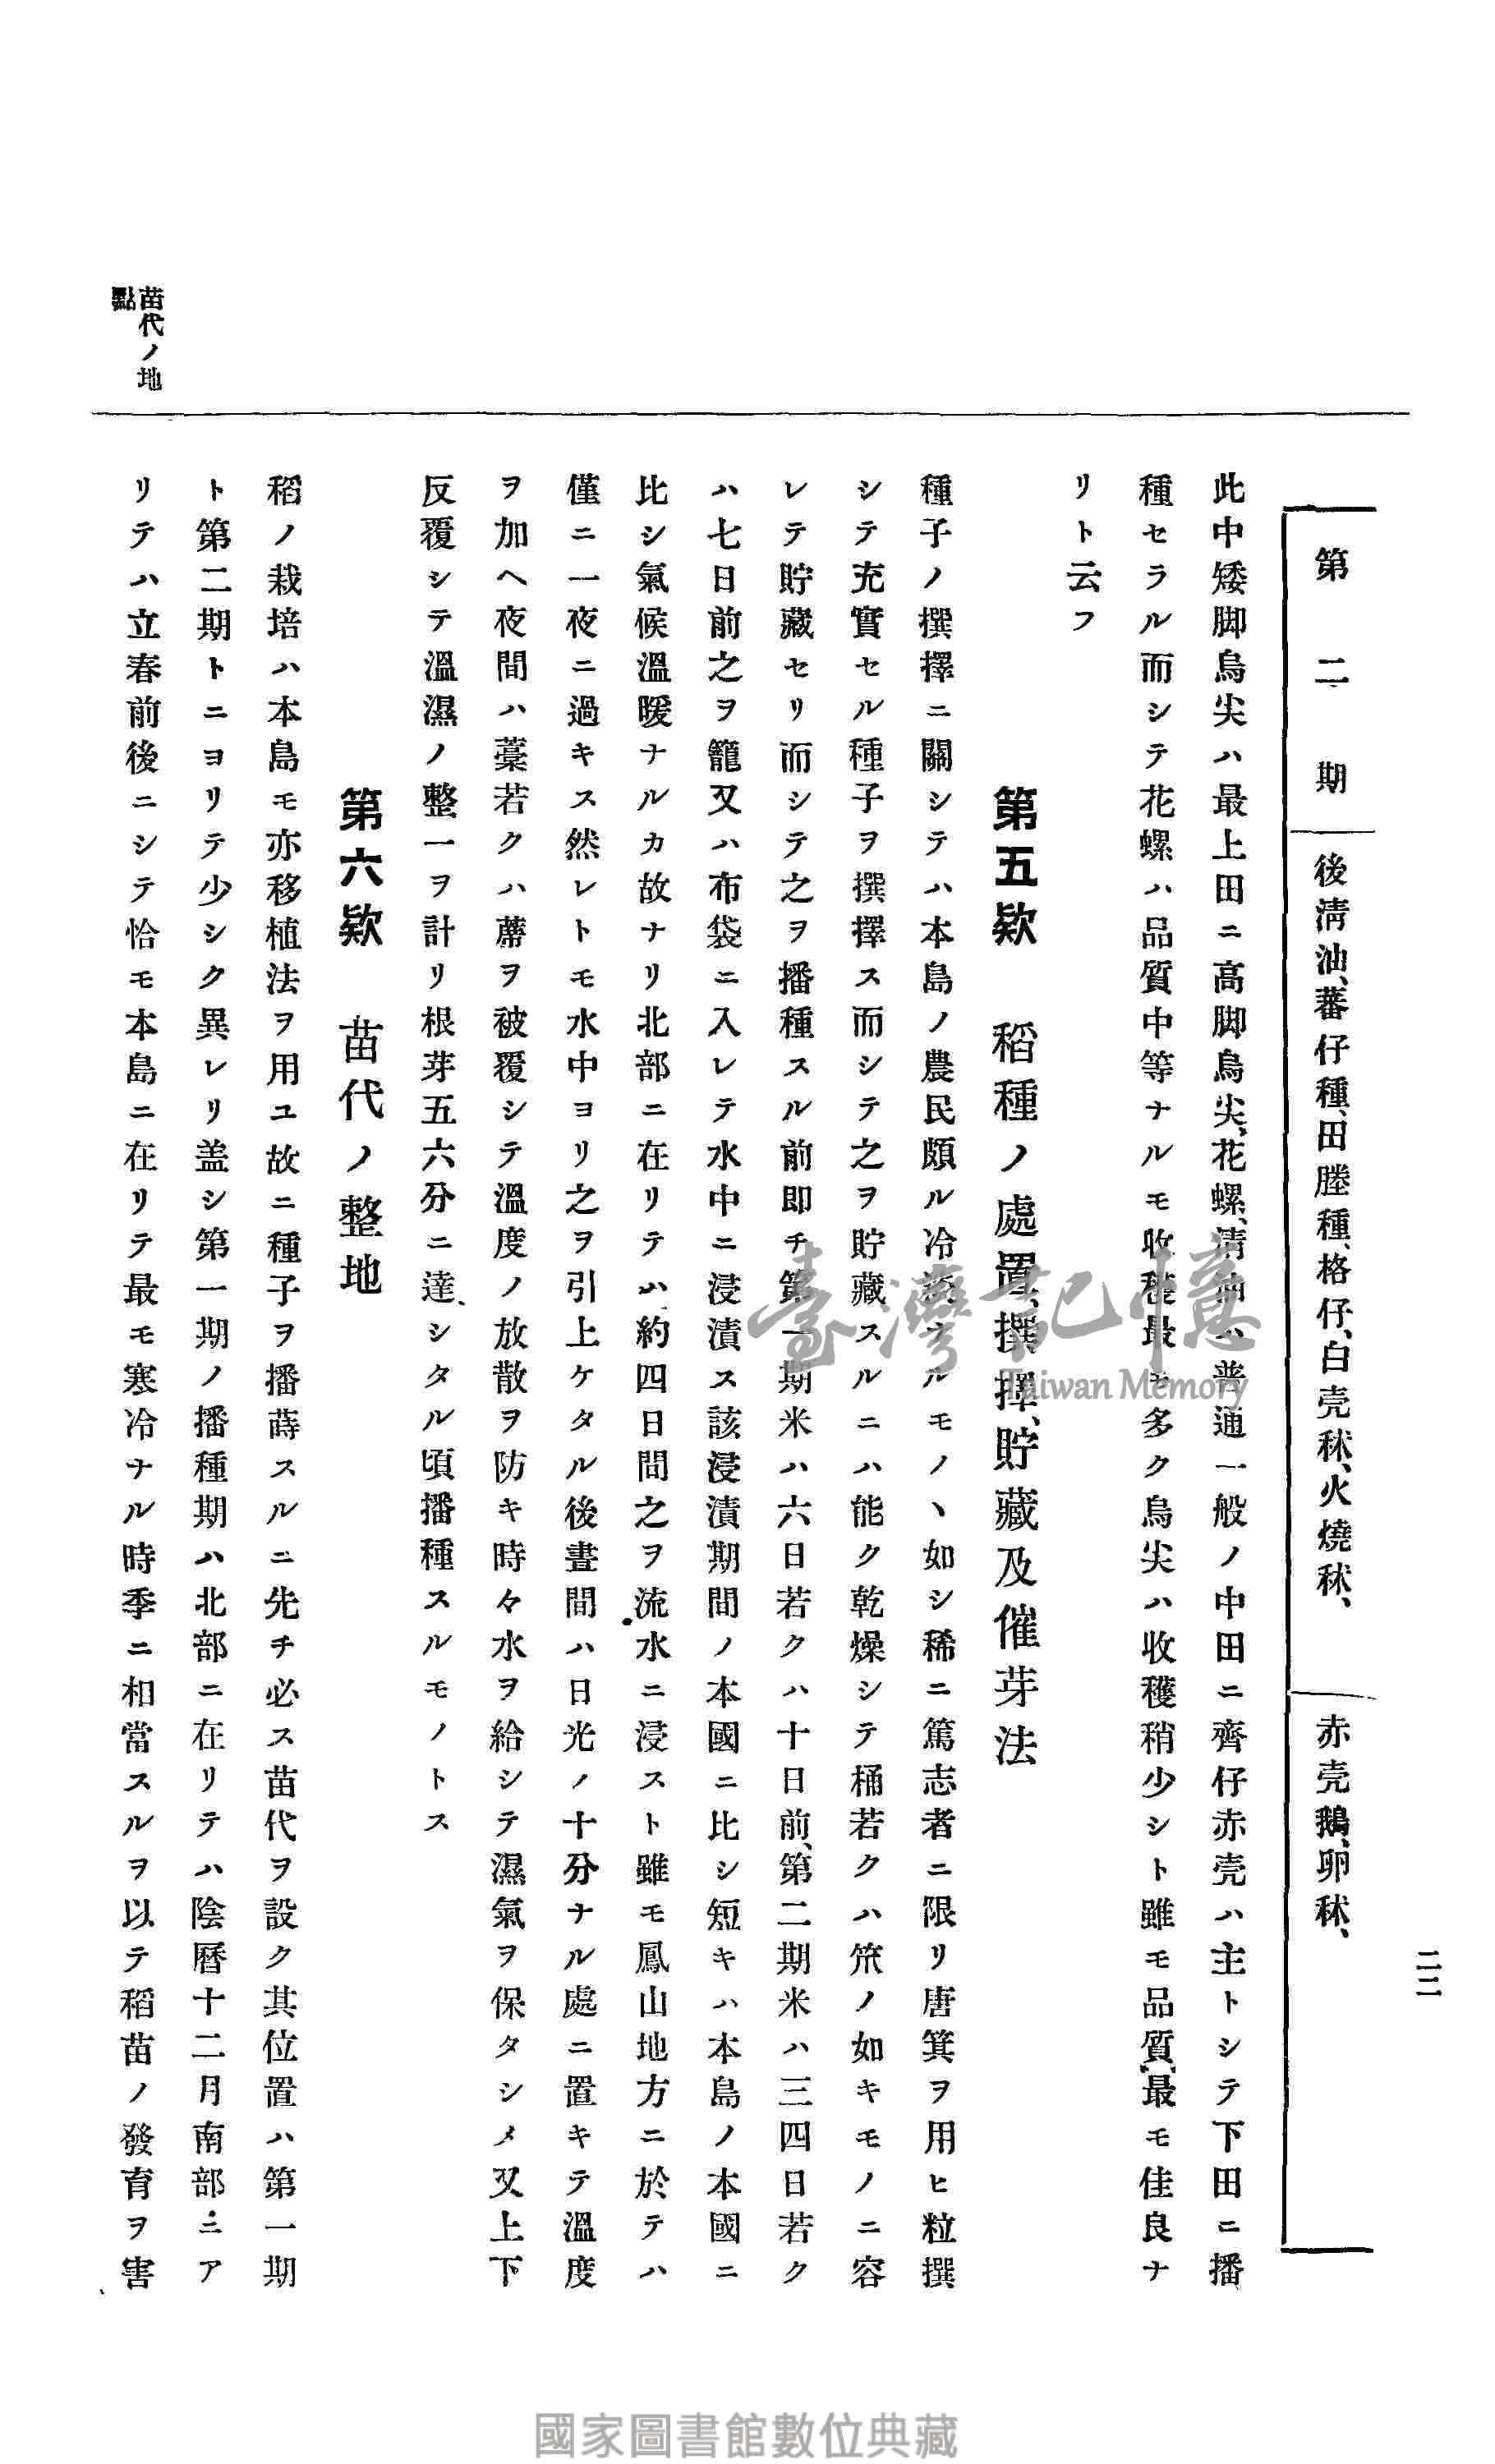 二二
第二期 後淸油、蕃仔種、田塍種、格仔、白壳秫、火燒秫、 赤壳鵝、卵秫、
此中矮脚烏尖ハ最上田ニ高脚烏尖、花螺、淸油ハ普通一般ノ中田ニ齊仔赤壳ハ主トシテ下田ニ播
種セラル而シテ花螺ハ品質中等ナルモ收穫最モ多ク烏尖ハ收穫稍少シト雖モ品質、最モ佳良ナ
リト云フ
第五欵 稻種ノ處置、撰擇、貯藏及催芽法
種子ノ撰擇ニ關シテハ本島ノ農民頗ル冷淡ナルモノヽ如シ稀ニ篤志者ニ限リ唐箕ヲ用ヒ粒撰
シテ充實セル種子ヲ撰擇ス而シテ之ヲ貯藏スルニハ能ク乾燥シテ桶若クハ笊ノ如キモノニ容
レテ貯藏セリ而シテ之ヲ播種スル前即チ第一期米ハ六日若クハ十日前、第二期米ハ三四日若ク
ハ七日前之ヲ籠又ハ布袋ニ入レテ水中ニ浸漬ス該浸漬期間ノ本國ニ比シ短キハ本島ノ本國ニ
比シ氣候溫暖ナルカ故ナリ北部ニ在リテハ約四日間之ヲ流水ニ浸スト雖モ鳳山地方ニ於テハ
僅ニ一夜ニ過キス然レトモ水中ヨリ之ヲ引上ケタル後晝間ハ日光ノ十分ナル處ニ置キテ溫度
ヲ加ヘ夜間ハ藁若クハ蓆ヲ被覆シテ溫度ノ放散ヲ防キ時々水ヲ給シテ濕氣ヲ保タシメ又上下
反覆シテ溫濕ノ整一ヲ計リ根芽五六分ニ達シタル頃播種スルモノトス
第六欵 苗代ノ整地
稻ノ栽培ハ本島モ亦移植法ヲ用ユ故ニ種子ヲ播蒔スルニ先チ必ス苗代ヲ設ク其位置ハ第一期
ト第二期トニヨリテ少シク異レリ盖シ第一期ノ播種期ハ北部ニ在リテハ陰曆十二月南部ニア
リテハ立春前後ニシテ恰モ本島ニ在リテ最モ寒冷ナル時季ニ相當スルヲ以テ稻苗ノ發育ヲ害
苗代ノ地
點
臺灣記憶
Taiwan Memory
國家圖書館數位典藏